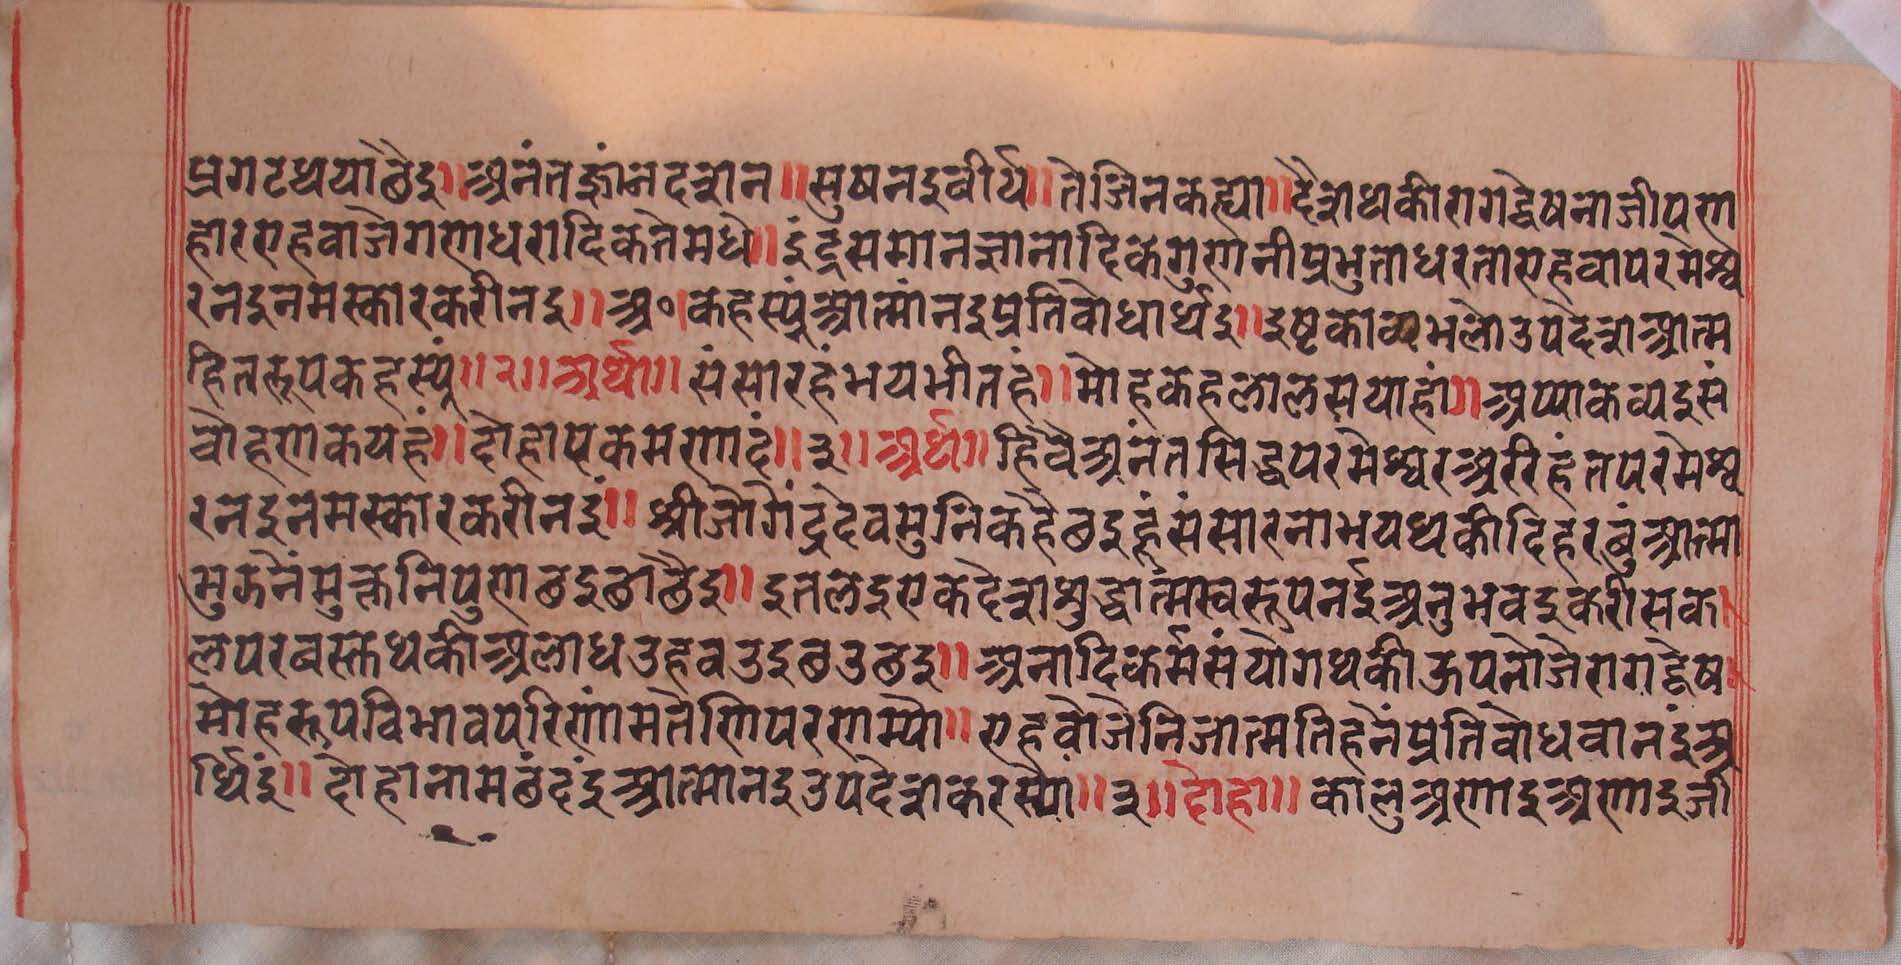 प्रगटथयाछैइ॥अनंतज्ञांनदरान॥सुषनइवीर्य॥तेजिनकह्या॥दैराथकीरागद्वेषनाजीपणा
हारएहवाजेगणधरादिकतेमधे॥इंद्रसमानज्ञानादिकगुणनीप्रभुताधरताएहवापरमेश्व
रनइनमस्कारकरीनइ॥अ०कहस्युंआत्मांनइप्रतिबोधार्थइ॥इष्टकाव्यभलोउपदेराआत्म
हितरूपकहस्युं॥२॥अर्था॥संसारहंभयभीतहं॥मोहकहलालसयाहां॥अप्पाकव्यइसं
बोहणकयहं॥दोहापकमणादं॥३॥अर्थ॥हिवैअनंतसिद्धपरमेश्वरअरिहंतपरमेश्व
रनइनमस्कारकरीनइं॥श्रीजोगेंद्रदेवमुनिकहैछइहूंसंसारनाभयथकीदिहरबुंआत्मा
मुऊनेंमुक्तनिपुणछइछाछैइ॥इतलेइएकदेराशुद्धात्मस्वरूपनईअनुभवइकरीसक
लपरवस्तथकीअलाधउहवउइछउछइ॥अनादिकर्मसंयोगथकीऊपनोजेरागद्वेष
मोहरूपविभावपरिणांमतेणिपरणम्यो॥एहवोजेनिजात्मतिहनेंप्रतिबोधवानइंअ
र्थिइं॥दोहानामछंदंइआत्मानइउपदेराकरस्यां॥३॥दोहा॥कालुअणाइअणाइजी